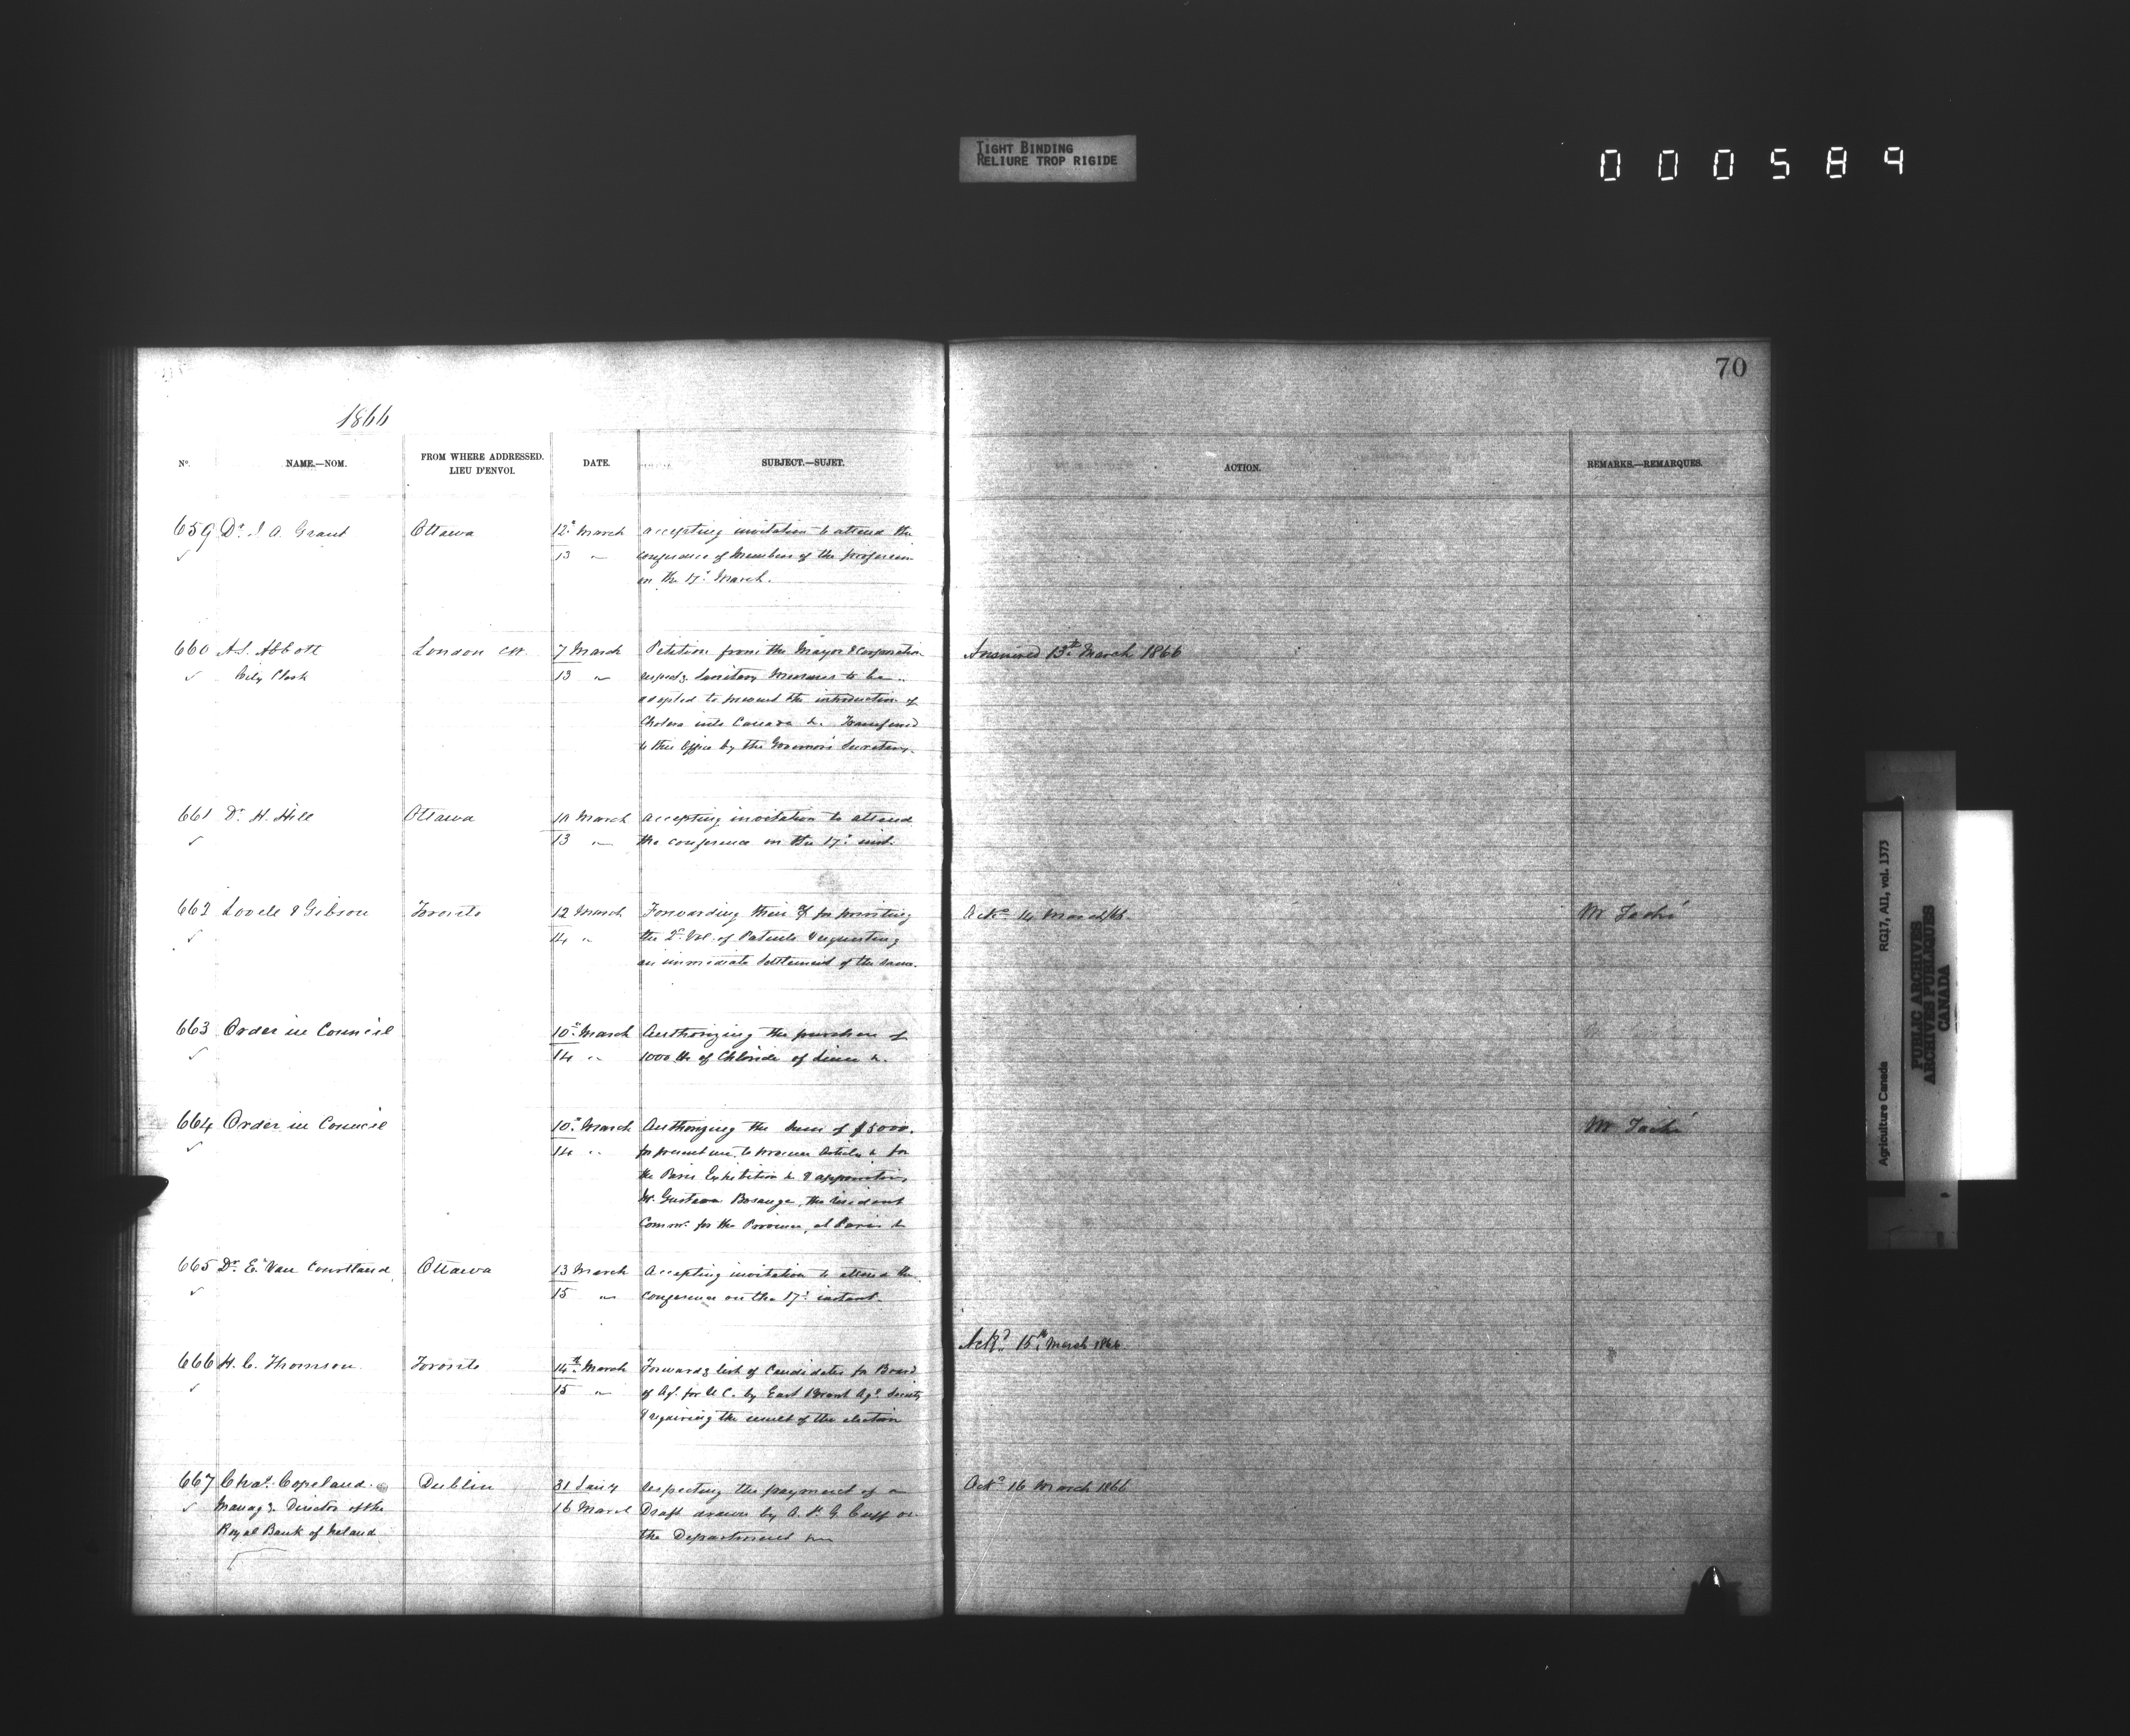 TIGHT BINDING
RELIURE TROP RIGIDE
000589
70
1866
No. NAME.—NOM. FROM WHERE ADDRESSED. LIEU D'ENVOI. DATE. SUBJECT.—SUJET. ACTION. REMARKS.—REMARQUES.
659 Dr. J. A. Grant Ottawa 12" March accepting invitation to attend the
13 " conference of Members of the profession
on the 17" March.
660 A.S. Abbott London CW 7 March Petition from the Mayor & Corporation Answered 13th March 1866
City Clerk 13 " respectg Sanitary Measures to be
adopted to prevent the introduction of
Cholera into Canada &c. Transferred
to this Office by the Governor's Secretary.
661 Dr. H. Hill Ottawa 10 March Accepting invitation to attend
13 " the conference on the 17" inst.
662 Lovell & Gibson Toronto 12 March Forwarding their a/c for printing Ackd 14 March/66 Mr Taché
14 " the 2d Vol. of Patents & requesting
an immediate Settlement of the same.
663 Order in Council 10" March Authorizing the purchase of
14 " 1000 lb of Chloride of Lime &c.
664 Order in Council 10" March Authorizing the Sum of $5000. Mr Taché
14 " for present use, to procure Articles &c for
the Paris Exhibition &c & appointing
Mr. Gustave Bossange, the resident
Commr. for the Province, at Paris &c
665 Dr. E. Van Courtland Ottawa 13 March Accepting invitation to attend the
15 " conference on the 17" instant.
Ackd 15th March 1866
666 H. C. Thomson Toronto 14th March Forwardg list of Candidates for Board
15 " of Agr. for U C. by East Brant Agl. Society
& requiring the result of the election
667 Chas. Copeland Dublin 31 Jany Respecting the payment of a Ackd 16 March 1866
Managg. Director of the 16 March Draft drawn by A. P. G. Cuff on
Royal Bank of Ireland the Department &c
Agriculture Canada RG17, AII, vol. 1373
PUBLIC ARCHIVES
ARCHIVES PUBLIQUES
CANADA